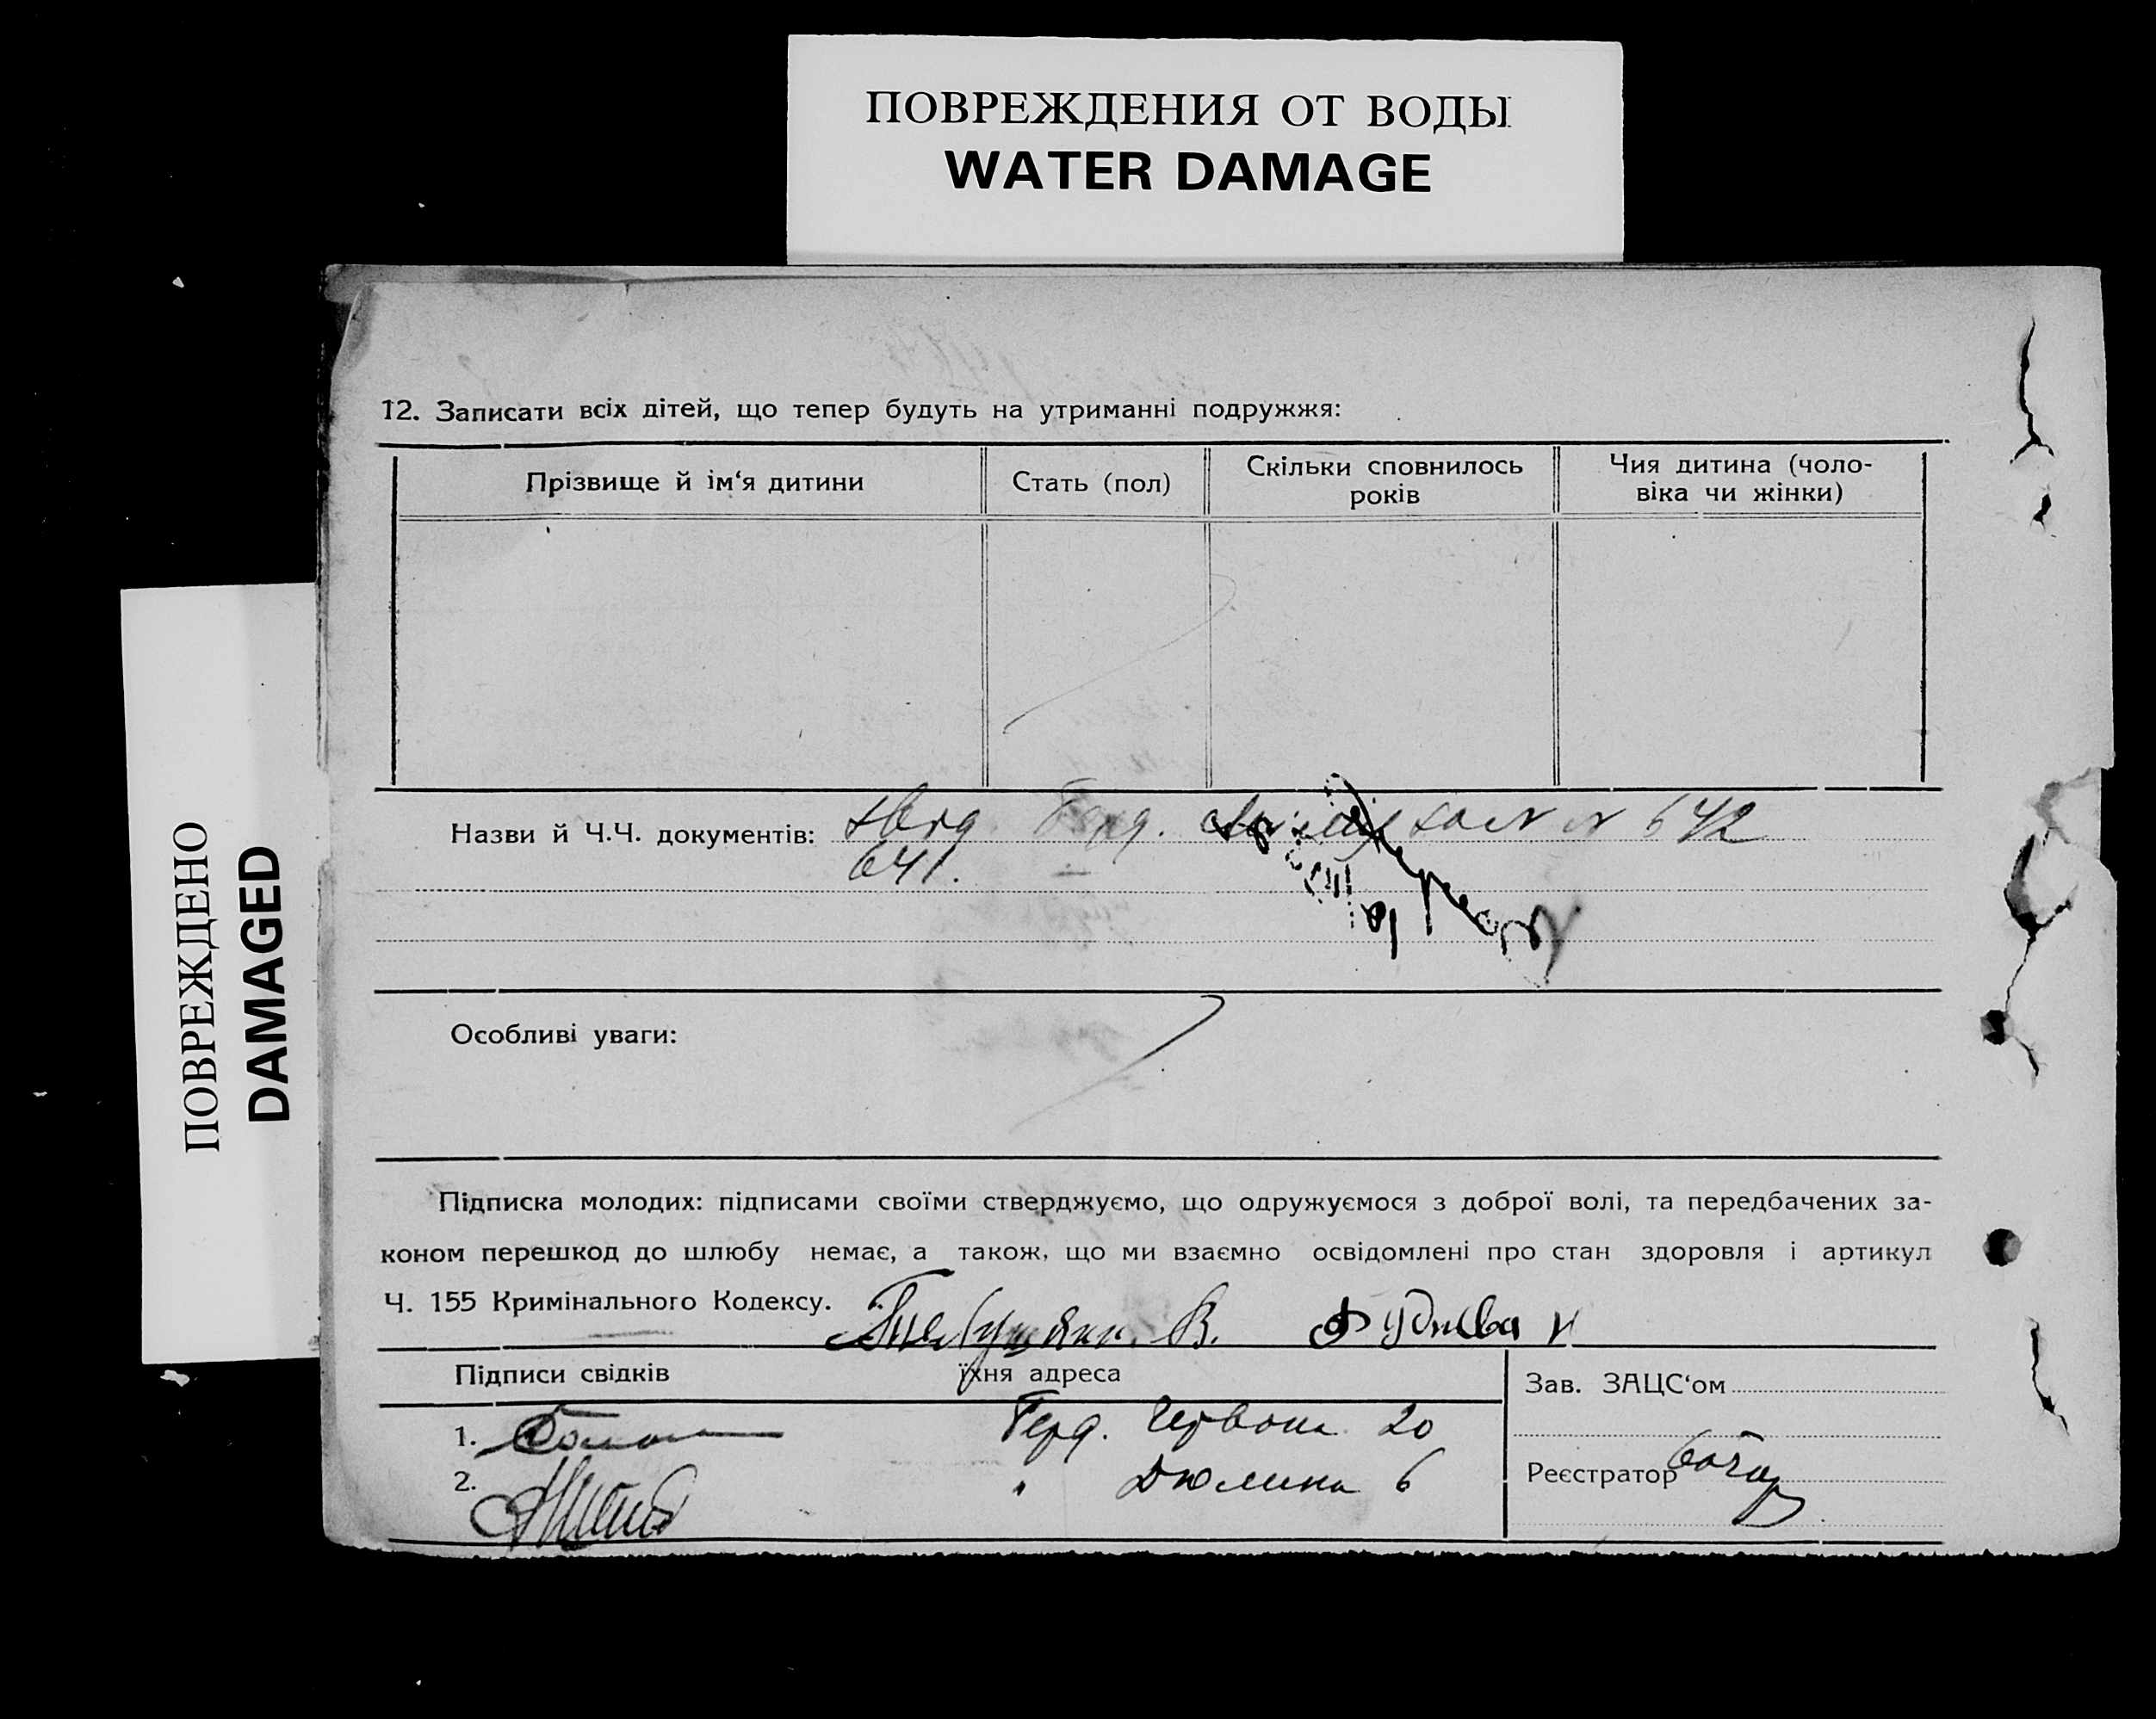 ПОВРЕЖДЕНИЯ ОТ ВОДЫ
WATER DAMAGE
ПОВРЕЖДЕНО
DAMAGED
12. Записати всіх дітей, що тепер будуть на утриманні подружжя:
Прізвище й ім‘я дитини
Стать (пол)
Скільки сповнилось
років
Чия дитина (чоло-
віка чи жінки)
Назви й Ч.Ч. документів: 642
641.
Особливі уваги:
Підписка молодих: підписами своїми стверджуємо, що одружуємося з доброї волі, та передбачених за-
коном перешкод до шлюбу немає, а також, що ми взаємно освідомлені про стан здоровля і артикул
Ч. 155 Кримінального Кодексу.
Підписи свідків
їхня адреса
Зав. ЗАЦС‘ом
1. Герд. Червона 20
2. " 6
Реєстратор